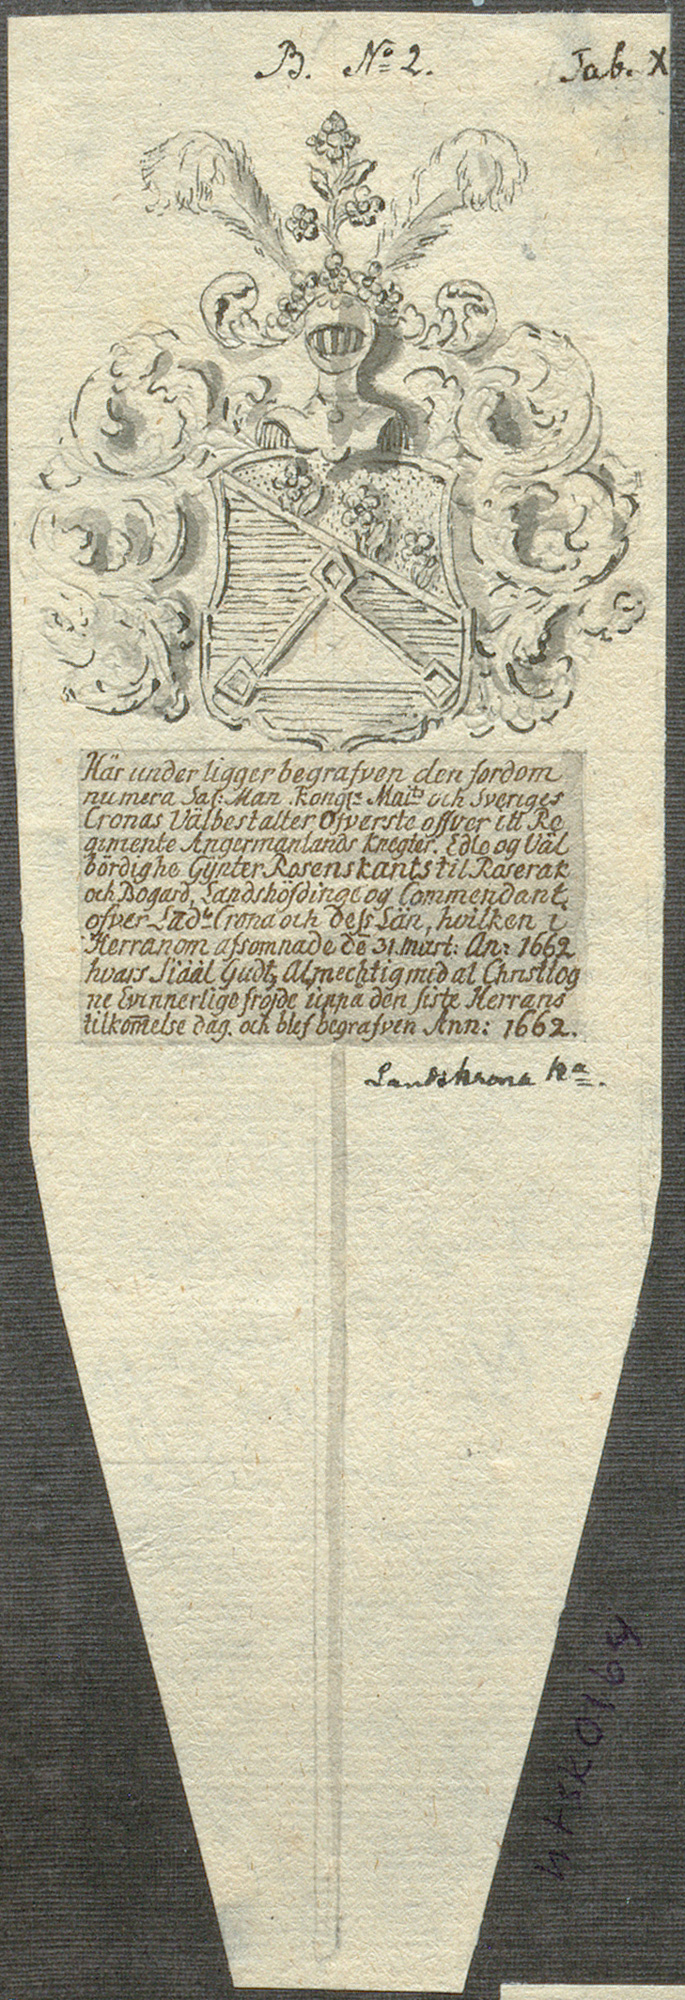 B. No 2. Tab. X
Här under ligger begrafven den fordom
numera Sal: Man. Kongl: Maits och Sveriges
Cronas Välbestalter Öfverste offver itt Re
gimente Angermanlands Knegter. Edle og Väl
bördighe Günter Rosenskants til Raserak
och Bogard, Landshöfdinge og Commendant
ofver Lads Crona och Dess Län, hvilken i
Herranom afsomnade dē 31. mart: An: 1662
hvars Siääl Gudt Almechtig med al Christtog
ne Evinnerlige frögde uppa den siste Herrans
tilkom̄else dag. och blef begrafven Ann: 1662.
Landskrona ka.